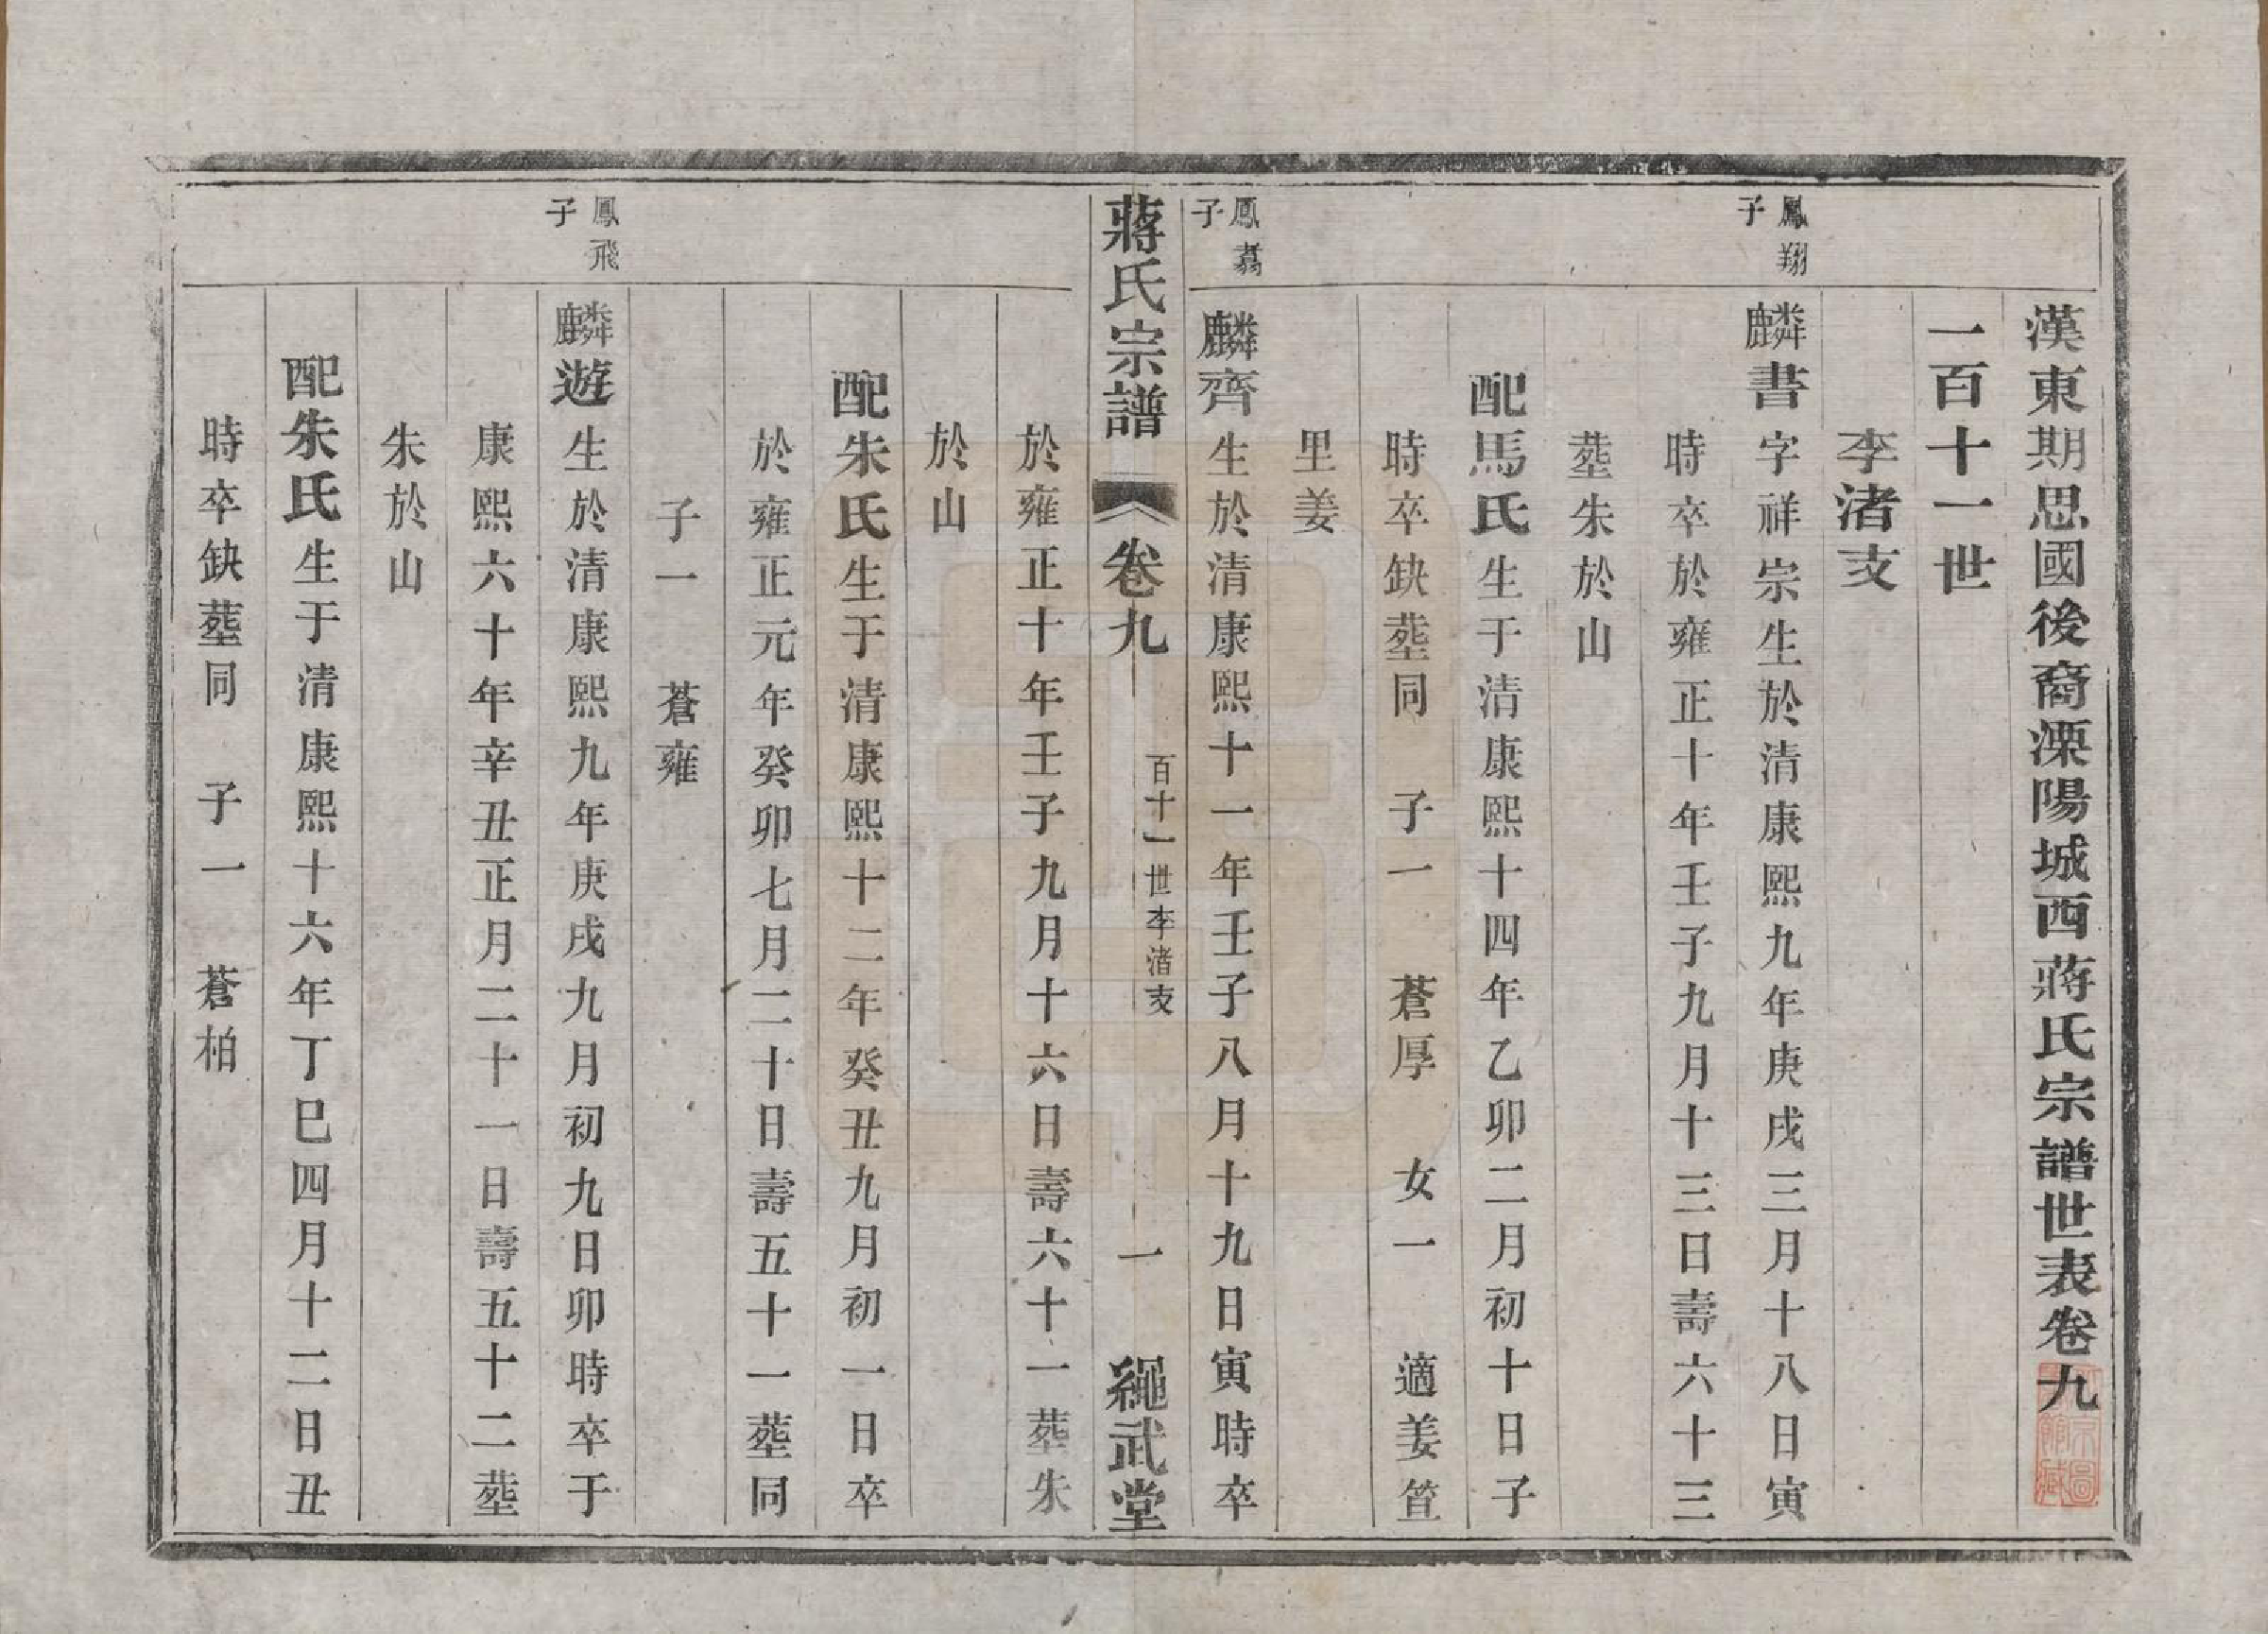 漢東期思國後裔溧陽城西蔣氏宗譜世表卷九
一百十一世
李渚支
鳳翔
子
麟書字祥宗生於清康熙九年庚戌三月十八日寅
時卒於雍正十年壬子九月十三日壽六十三
塟朱於山
配馬氏生于清康熙十四年乙卯二月初十日子
時卒缺塟同 子一 蒼厚 女一 適姜笪
里姜
鳳翥
子
麟齊生於清康熙十一年壬子八月十九日寅時卒
蔣氏宗譜 卷九 百十一世李渚支 一 繩武堂
於雍正十年壬子九月十六日壽六十一塟朱
於山
配朱氏生于清康熙十二年癸丑九月初一日卒
於雍正元年癸卯七月二十日壽五十一塟同
子一 蒼雍
鳳飛
子
麟遊生於清康熙九年庚戌九月初九日卯時卒于
康熙六十年辛丑正月二十一日壽五十二塟
朱於山
配朱氏生于清康熙十六年丁巳四月十二日丑
時卒缺塟同 子一 蒼柏